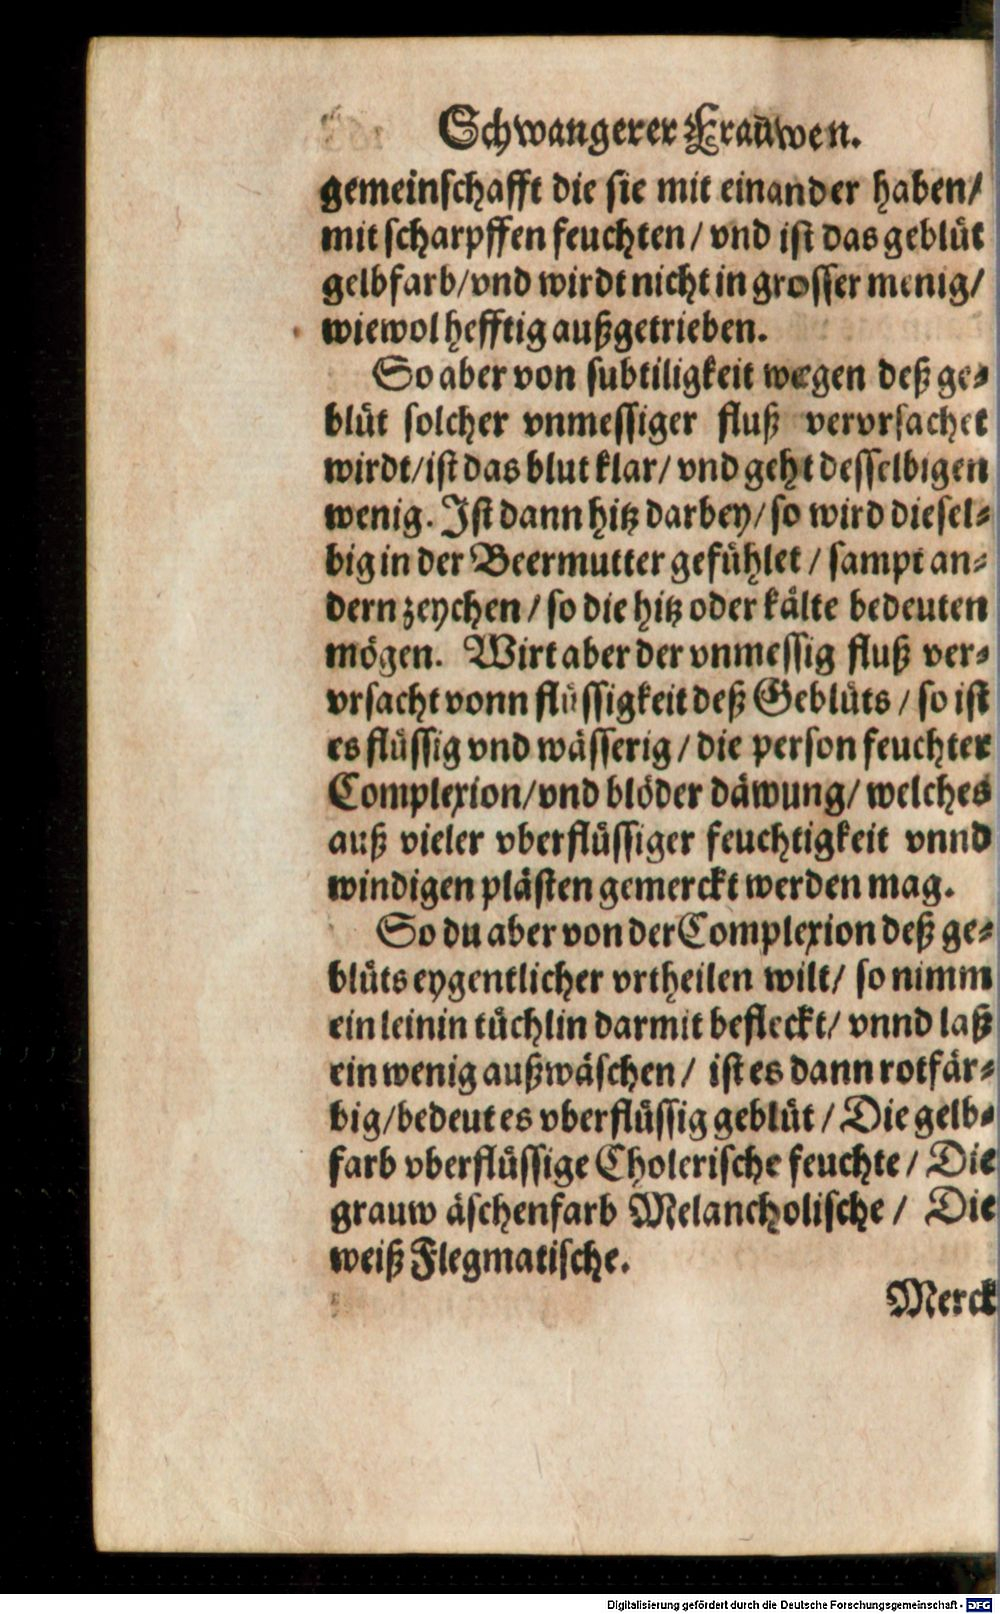 Schwangerer Frauwen.
gemeinschafft die sie mit einander haben/
mit scharpffen feuchten / vnd ist das geblüt
gelbfarb/vnd wirdt nicht in grosser menig/
wiewol hefftig außgetrieben.
So aber von subtiligkeit wegen deß ge⸗
blüt solcher vnmessiger fluß vervrsachet
wirdt/ist das blut klar/ vnd geht desselbigen
wenig. Ist dann hitz darbey/ so wird diesel⸗
big in der Beermutter gefühlet / sampt an⸗
dern zeychen / so die hitz oder kälte bedeuten
mögen. Wirt aber der vnmessig fluß ver⸗
vrsacht vonn flüssigkeit deß Geblüts / so ist
es flüssig vnd wässerig / die person feuchter
Complexion/vnd blöder däwung/ welches
auß vieler vberflüssiger feuchtigkeit vnnd
windigen plästen gemerckt werden mag.
So du aber von der Complexion deß ge⸗
blüts eygentlicher vrtheilen wilt/ so nimm
ein leinin tüchlin darmit befleckt/ vnnd laß
ein wenig außwäschen / ist es dann rotfär⸗
big/bedeut es vberflüssig geblüt / Die gelb⸗
farb vberflüssige Cholerische feuchte / Die
grauw äschenfarb Melancholische / Die
weiß Flegmatische.
Merck
Digitalisierung gefördert durch die Deutsche Forschungsgemeinschaft - DFG